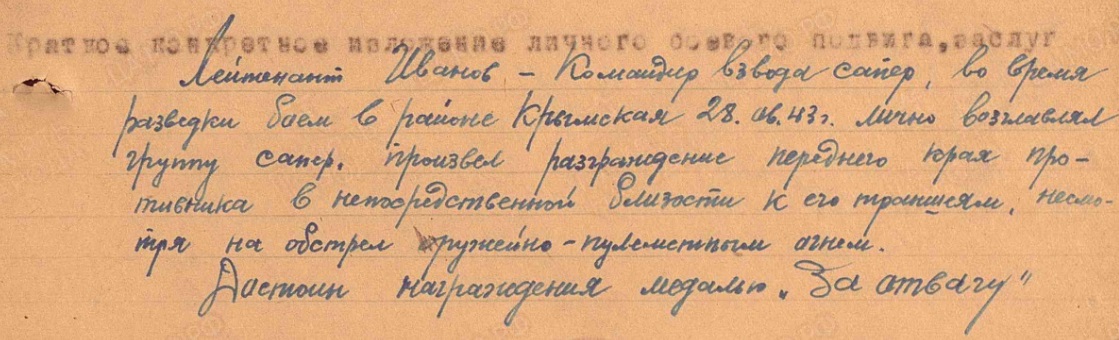 Краткое конкретное изложение личного боевого подвига, заслуг
Лейтенант Иванов – Командир взвода сапер, во время
разведки боем в районе Крымская 28.04.43г. лично возглавлял
группу сапер. произвел разграждение переднего края про-
тивника в непосредственной близости к его траншеям, несмо-
тря на обстрел оружейно-пулеметным огнем.
Достоин награждения медалью „За отвагу"